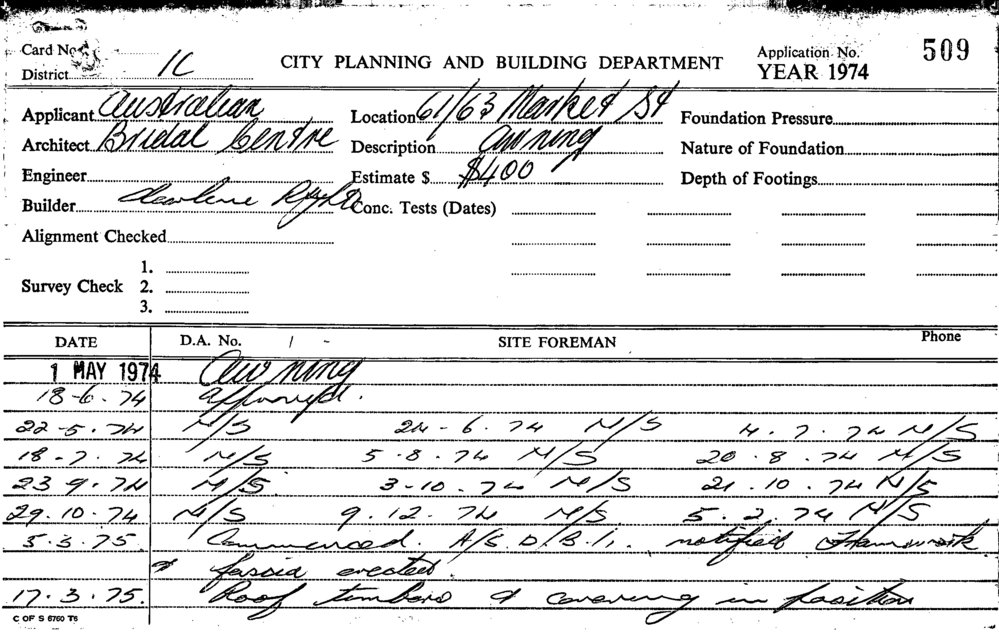 Card No.
District 1C
CITY PLANNING AND BUILDING DEPARTMENT
Application No. 509
YEAR 1974
Applicant Australian
Location 61/63 Market St
Foundation Pressure
Architect Bridal Centre
Description Awning
Nature of Foundation
Engineer
Estimate $ $400
Depth of Footings
Builder
Conc. Tests (Dates)
Alignment Checked
1.
Survey Check 2.
3.
DATE D.A. No. / - SITE FOREMAN Phone
1 MAY 1974 Awning
18-6.74 Approved.
22-5.74 N/S 24-6.74 N/S 4.7.74 N/S
18-7.74 N/S 5-8.74 N/S 20.8.74 N/S
23 9.74 N/S. 3-10.74 N/S 21.10.74 N/S
29.10.74 N/S 9.12.74 N/S 5.2.74 N/S
5.3.75. Commenced. A/C.D.B.I. notified Framework
& fascia erected.
17.3.75. Roof timbers & covering in position
C OF S 6760 T6